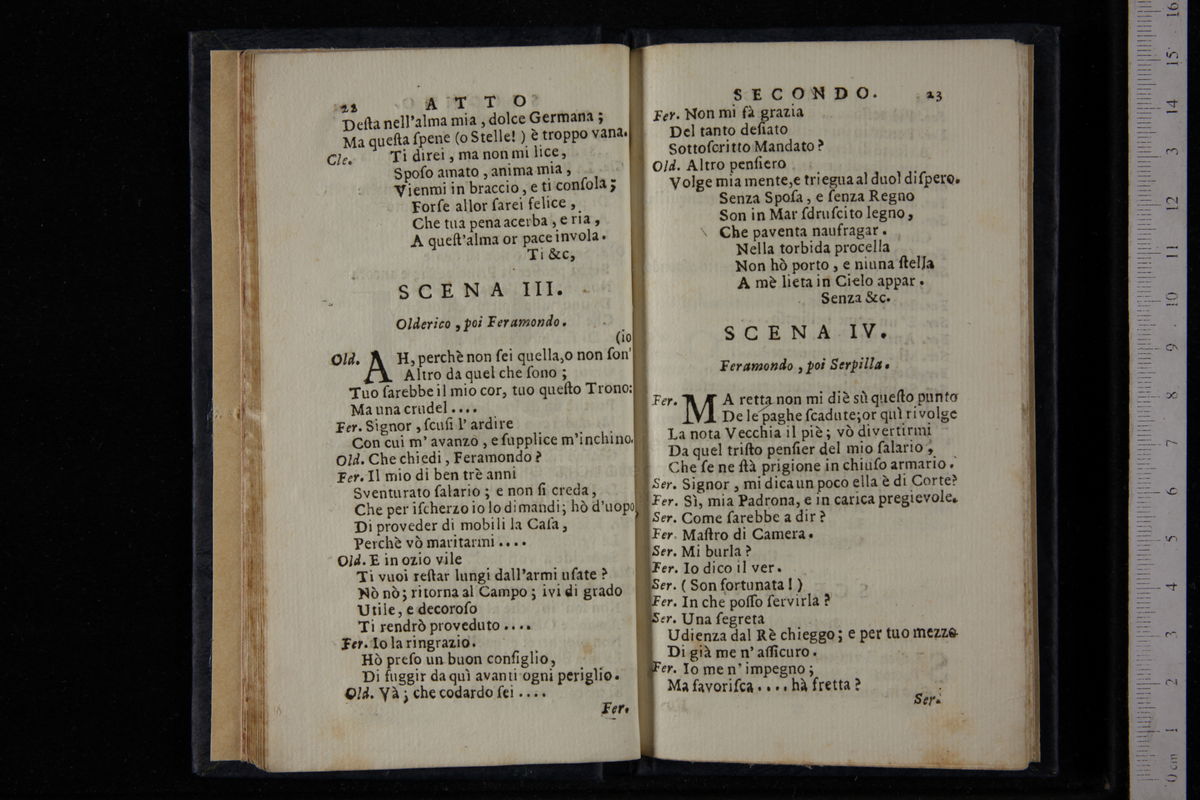 22 ATTO
Desta nell'alma mia, dolce Germana;
Ma questa spene (o Stelle!) è troppo vana.
Cle. Ti direi, ma non mi lice,
Sposo amato, anima mia,
Vienmi in braccio, e ti consola;
Forse allor sarei felice,
Che tua pena acerba, e ria,
A quest'alma or pace invola.
Ti &c,
SCENA III.
Olderico, poi Feramondo.
(io
Old. AH, perchè non sei quella, o non son'
Altro da quel che sono;
Tuo sarebbe il mio cor, tuo questo Trono:
Ma una crudel....
Fer. Signor, scusi l'ardire
Con cui m'avanzo, e supplice m'inchino.
Old. Che chiedi, Feramondo?
Fer. Il mio di ben trè anni
Sventurato salario; e non si creda,
Che per ischerzo io lo dimandi; hò d'uopo
Di proveder di mobili la Casa,
Perchè vò maritarmi....
Old. E in ozio vile
Ti vuoi restar lungi dall'armi usate?
Nò nò; ritorna al Campo; ivi di grado
Utile, e decoroso
Ti rendrò proveduto....
Fer. Io la ringrazio.
Hò preso un buon consiglio,
Di fuggir da quì avanti ogni periglio.
Old. Và; che codardo sei....
Fer.
SECONDO. 23
Fer. Non mi fà grazia
Del tanto desiato
Sottoscritto Mandato?
Old. Altro pensiero
Volge mia mente, e triegua al duol dispero.
Senza Sposa, e senza Regno
Son in Mar sdruscito legno,
Che paventa naufragar.
Nella torbida procella
Non hò porto, e niuna stella
A mè lieta in Cielo appar.
Senza &c.
SCENA IV.
Feramondo, poi Serpilla.
Fer. MA retta non mi diè sù questo punto
De le paghe scadute; or quì rivolge
La nota Vecchia il piè; vò divertirmi
Da quel tristo pensier del mio salario,
Che se ne stà prigione in chiuso armario.
Ser. Signor, mi dica un poco ella è di Corte?
Fer. Sì, mia Padrona, e in carica pregievole.
Ser. Come sarebbe a dir?
Fer. Mastro di Camera.
Ser. Mi burla?
Fer. Io dico il ver.
Ser. (Son fortunata!)
Fer. In che posso servirla?
Ser. Una segreta
Udienza dal Rè chieggo; e per tuo mezzo
Di già me n'assicuro.
Fer. Io me n'impegno;
Ma favorisca.... hà fretta?
Ser.
0 cm 1 2 3 4 5 6 7 8 9 10 11 12 3 14 15 16